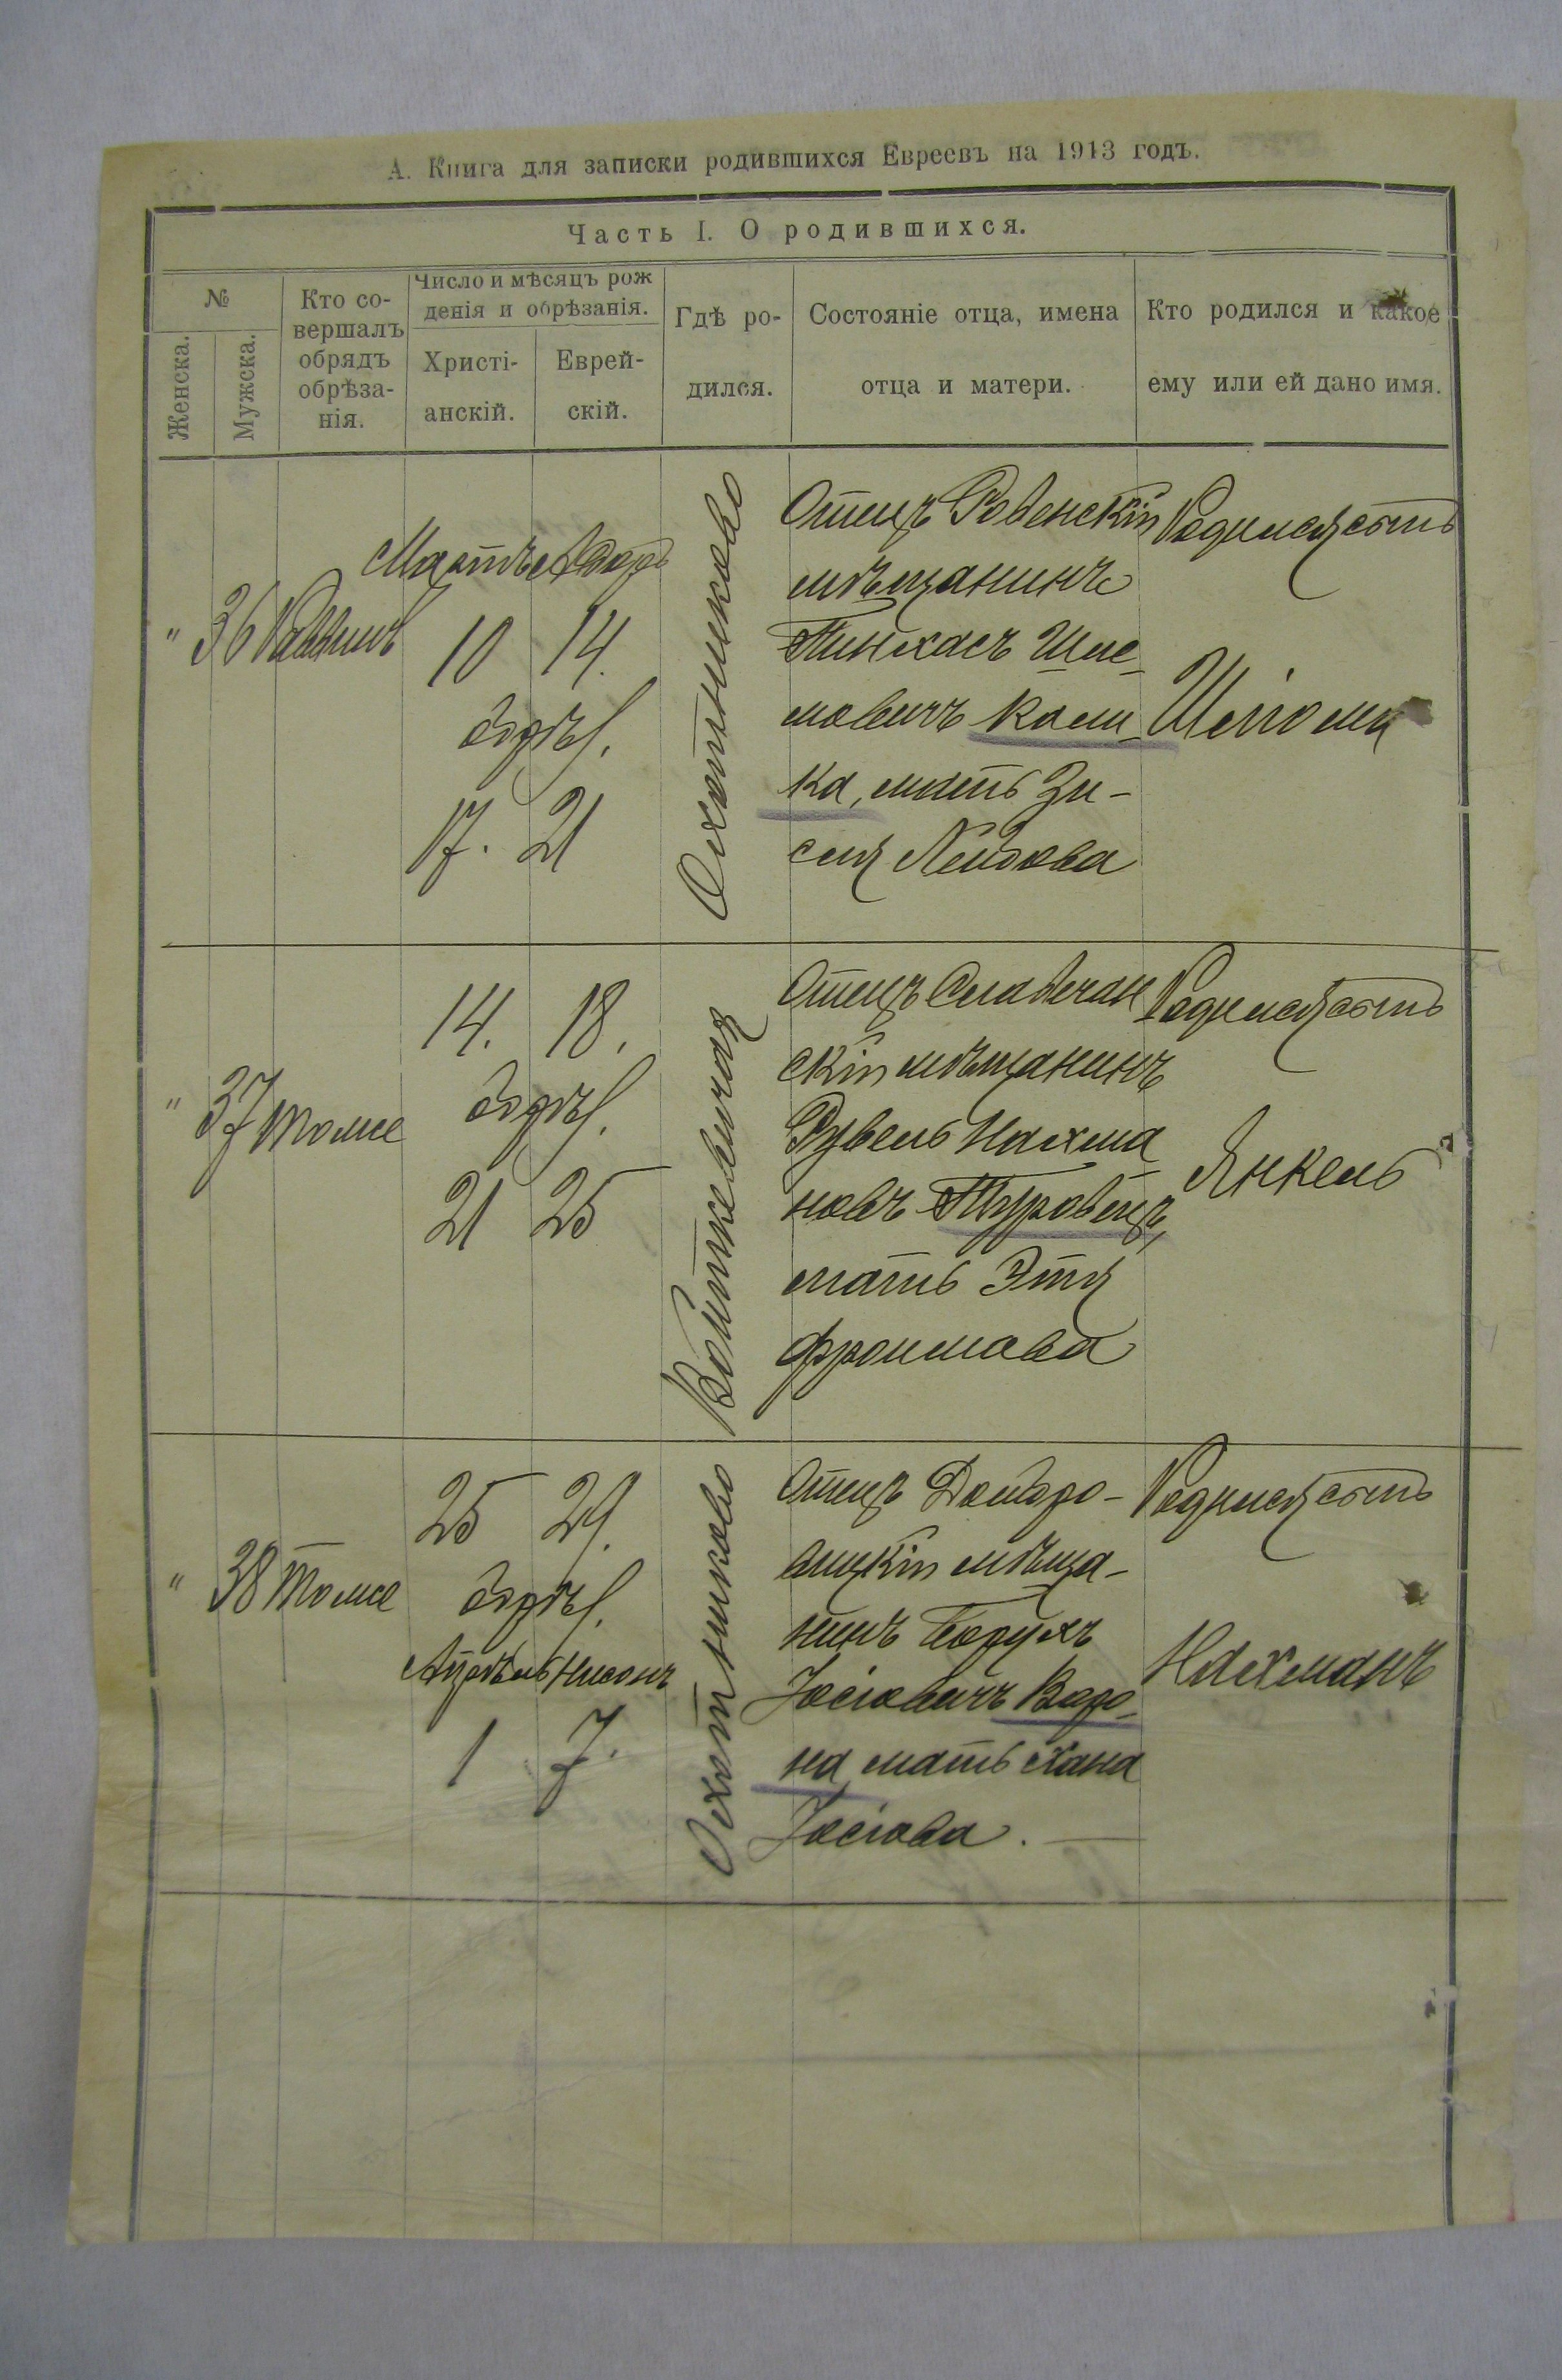 А. Книга для записки родившихся Евреевъ на 1913 годъ.
Часть I. О родившихся.
№
Женска.
Мужска.
Кто со-
вершалъ
обрядъ
обрѣза-
нія.
Число и мѣсяцъ рож
денія и обрѣзанія.
Христі-
анскій.
Еврей-
скій.
Гдѣ ро-
дился.
Состояніе отца, имена
отца и матери.
Кто родился и какое
ему или ей дано имя.
" 36 Раввинъ
Мартъ Адаръ
10 14.
обрѣз.
17. 21
Охотниково
Отецъ Ровенскій
мѣщанинъ
Пинхасъ Шле-
мовичъ Кали-
ка, мать Зи-
сля Лейбова
Родился сынъ
Шліома
" 37 Тоже
14. 18.
обрѣз.
21 25
Войткевичах
Отецъ Славечан
скій мѣщанинъ
Рувель Нахма
новъ Туровецъ,
мать Этя
Фроимова
Родился сынъ
Янкель
" 38 Тоже
25 29.
обрѣз.
Апрѣль Нисонъ
1 7.
Охотниково
Отецъ Домбро-
вицкій мѣща-
нинъ Борухъ
Іосіовичъ Воро-
на мать Хана
Іосіова.
Родился сынъ
Нахманъ